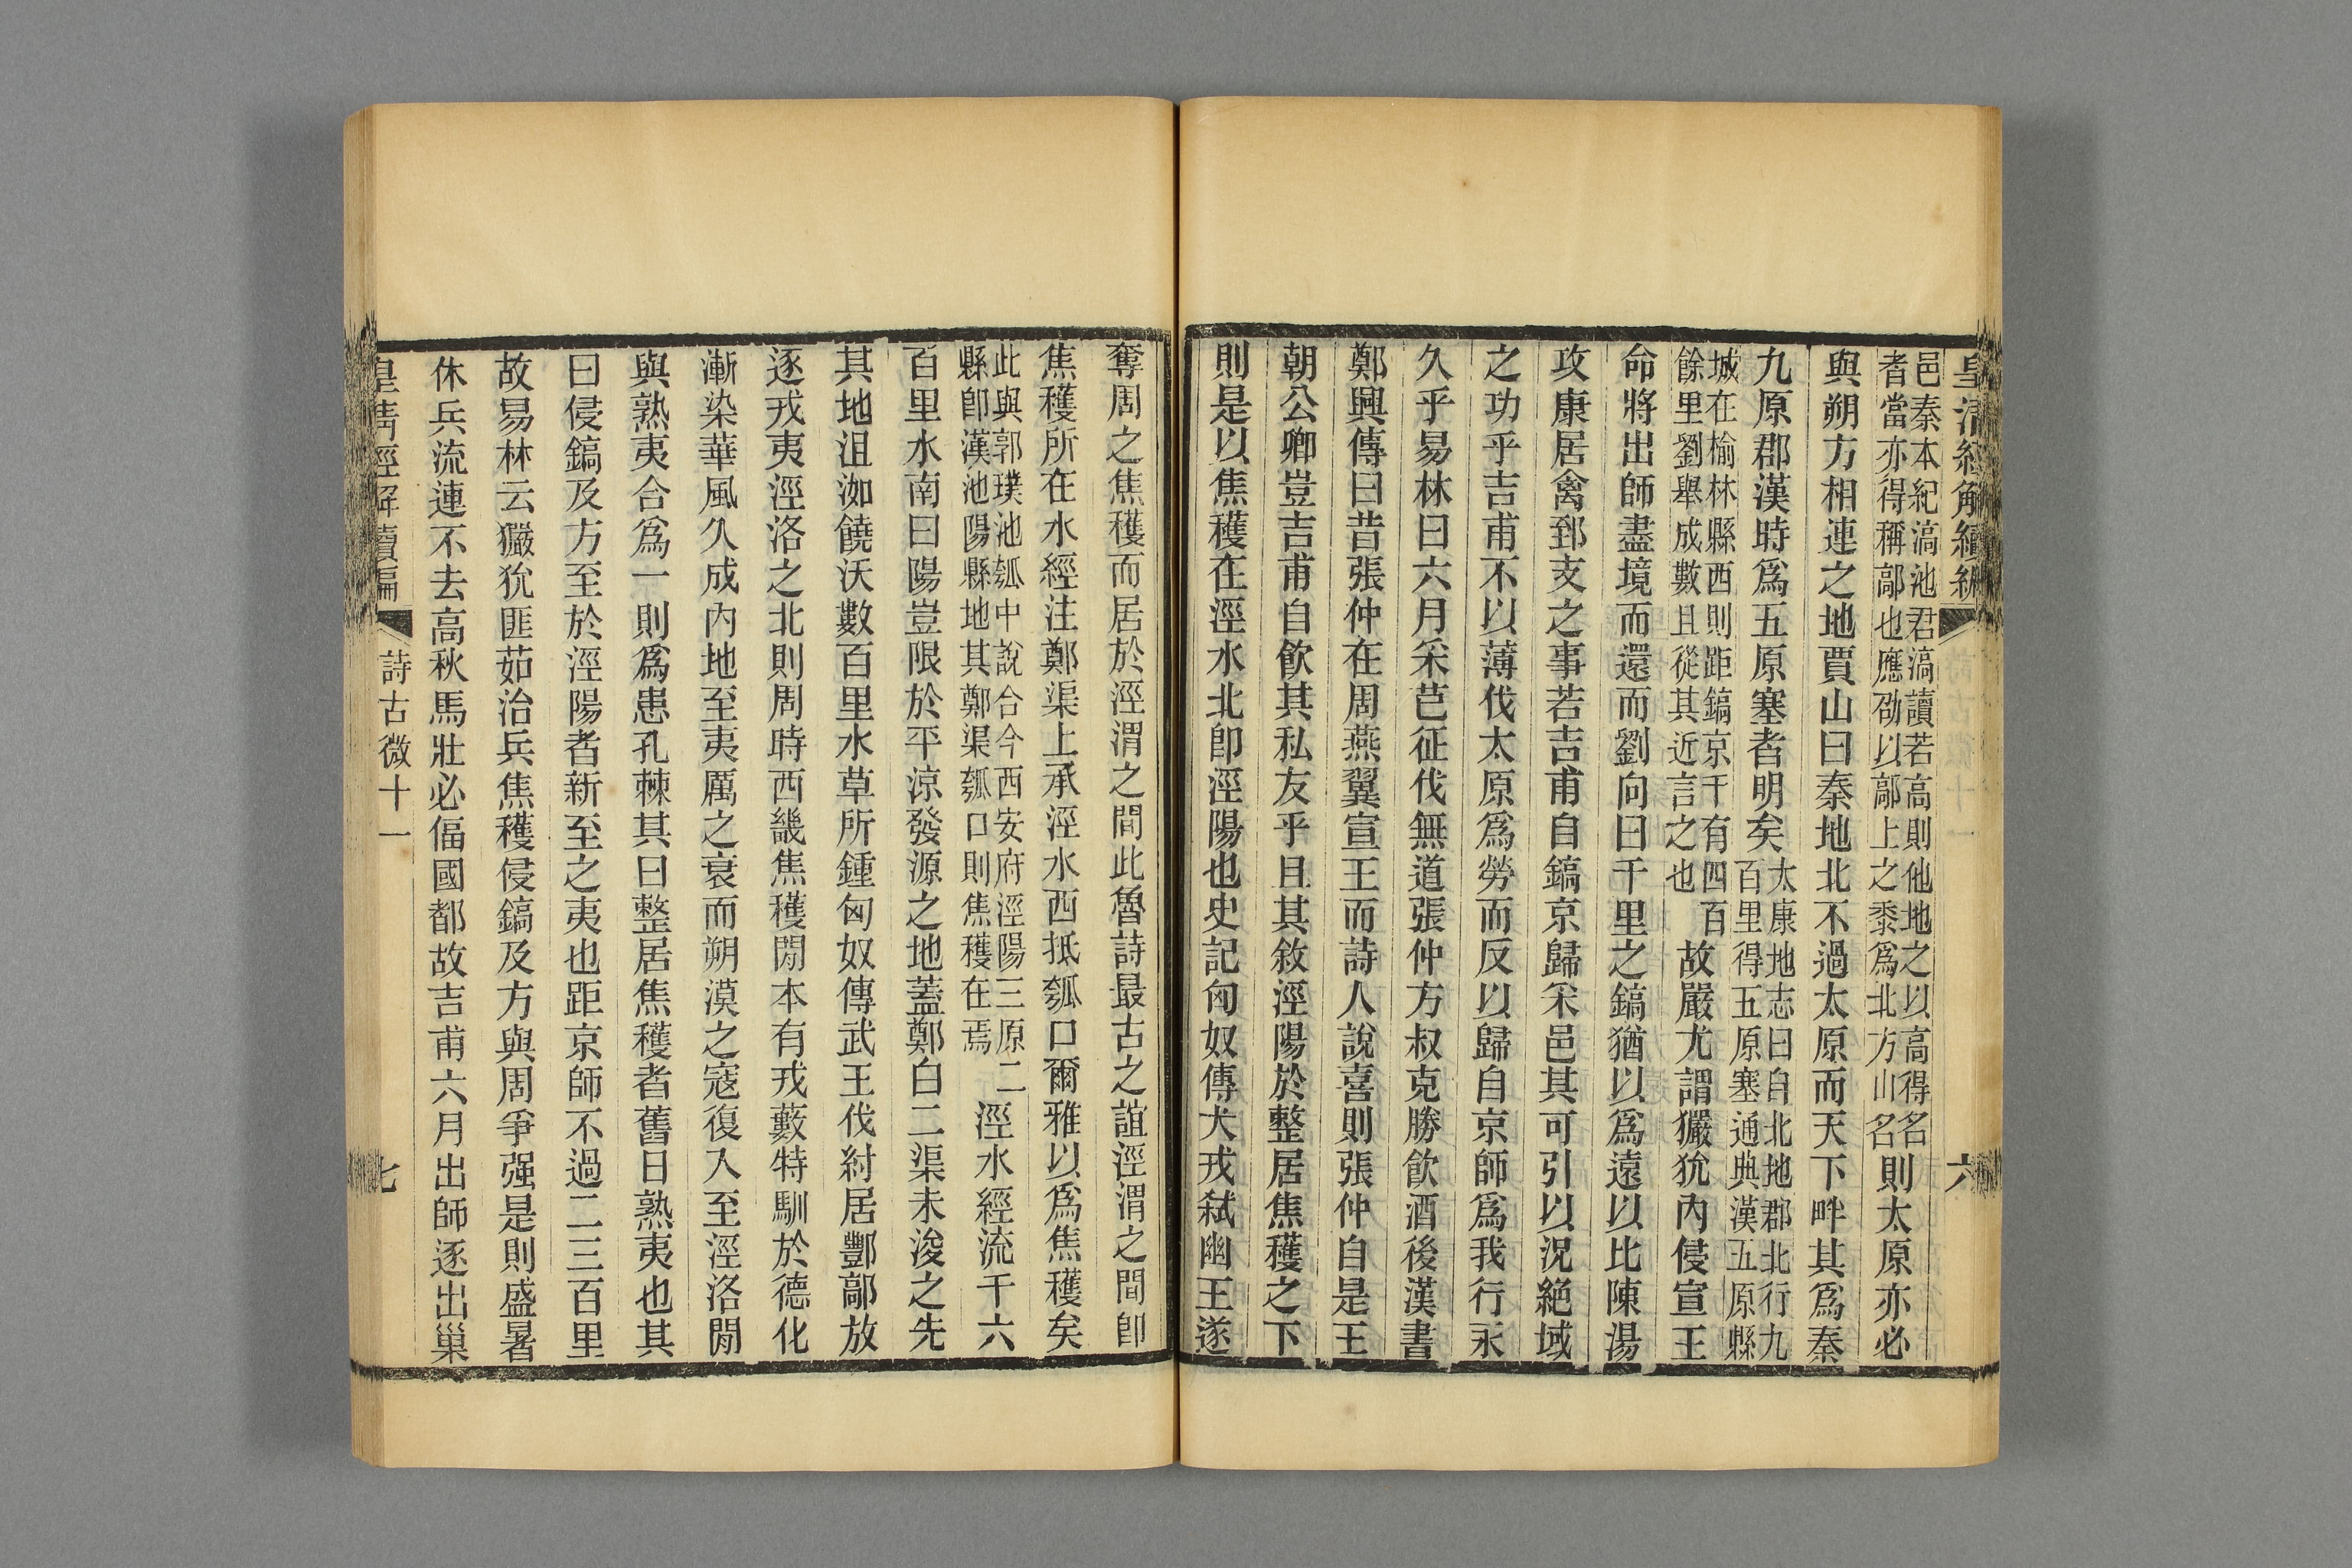 皇清經解續編
六
邑秦本紀滈池君滈讀若高則他地之以高得名
者當亦得稱鄗也應劭以鄗上之黍爲北方山名則太原亦必
與朔方相連之地賈山曰秦地北不過太原而天下畔其爲秦
九原郡漢時爲五原塞者明矣太康地志曰自北地郡北行九
百里得五原塞通典漢五原縣
城在榆林縣西則距鎬京千有四百
餘里劉舉成數且從其近言之也故嚴尤謂玁狁內侵宣王
命將出師盡境而還而劉向曰千里之鎬猶以爲遠以比陳湯
攻康居禽郅支之事若吉甫自鎬京歸采邑其可引以況絕域
之功乎吉甫不以薄伐太原爲勞而反以歸自京師爲我行永
久乎易林曰六月采芑征伐無道張仲方叔克勝飮酒後漢書
鄭興傳曰昔張仲在周燕翼宣王而詩人說喜則張仲自是王
朝公卿豈吉甫自飮其私友乎且其敘涇陽於整居焦穫之下
則是以焦穫在涇水北卽涇陽也史記匈奴傳犬戎弑幽王遂
奪周之焦穫而居於涇渭之間此魯詩最古之誼涇渭之間卽
焦穫所在水經注鄭渠上承涇水西抵瓠口爾雅以爲焦穫矣
此與郭璞池瓠中說合今西安府涇陽三原二
縣卽漢池陽縣地其鄭渠瓠口則焦穫在焉涇水經流千六
百里水南曰陽豈限於平涼發源之地蓋鄭白二渠未浚之先
其地沮洳饒沃數百里水草所鍾匈奴傳武王伐紂居酆鄗放
逐戎夷涇洛之北則周時西畿焦穫閒本有戎藪特馴於德化
漸染華風久成內地至夷厲之衰而朔漠之寇復入至涇洛閒
與熟夷合爲一則爲患孔棘其曰整居焦穫者舊日熟夷也其
曰侵鎬及方至於涇陽者新至之夷也距京師不過二三百里
故易林云玁狁匪茹治兵焦穫侵鎬及方與周爭强是則盛暑
休兵流連不去高秋馬壯必偪國都故吉甫六月出師逐出巢
皇清經解續編
詩古微十一
七